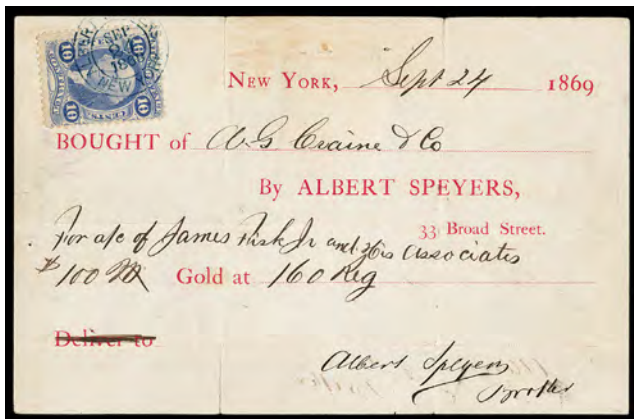 10 10
CENTS
10 10
SEP
24
1869
NEW YORK
NEW YORK, Sept 24 1869
BOUGHT of A. G Craine & Co
By ALBERT SPEYERS,
33 Broad Street.
For a/c of James Fisk Jr and His Associates
$100 M Gold at 160 Reg
Deliver to
Albert Speyers
Broker